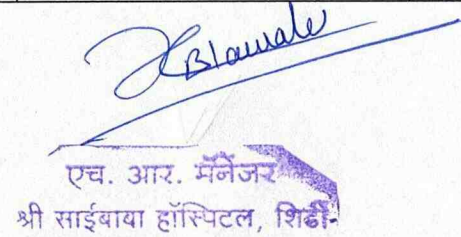 एच. आर. मॅनेजर
श्री साईबाबा हॉस्पिटल, शिर्डी-